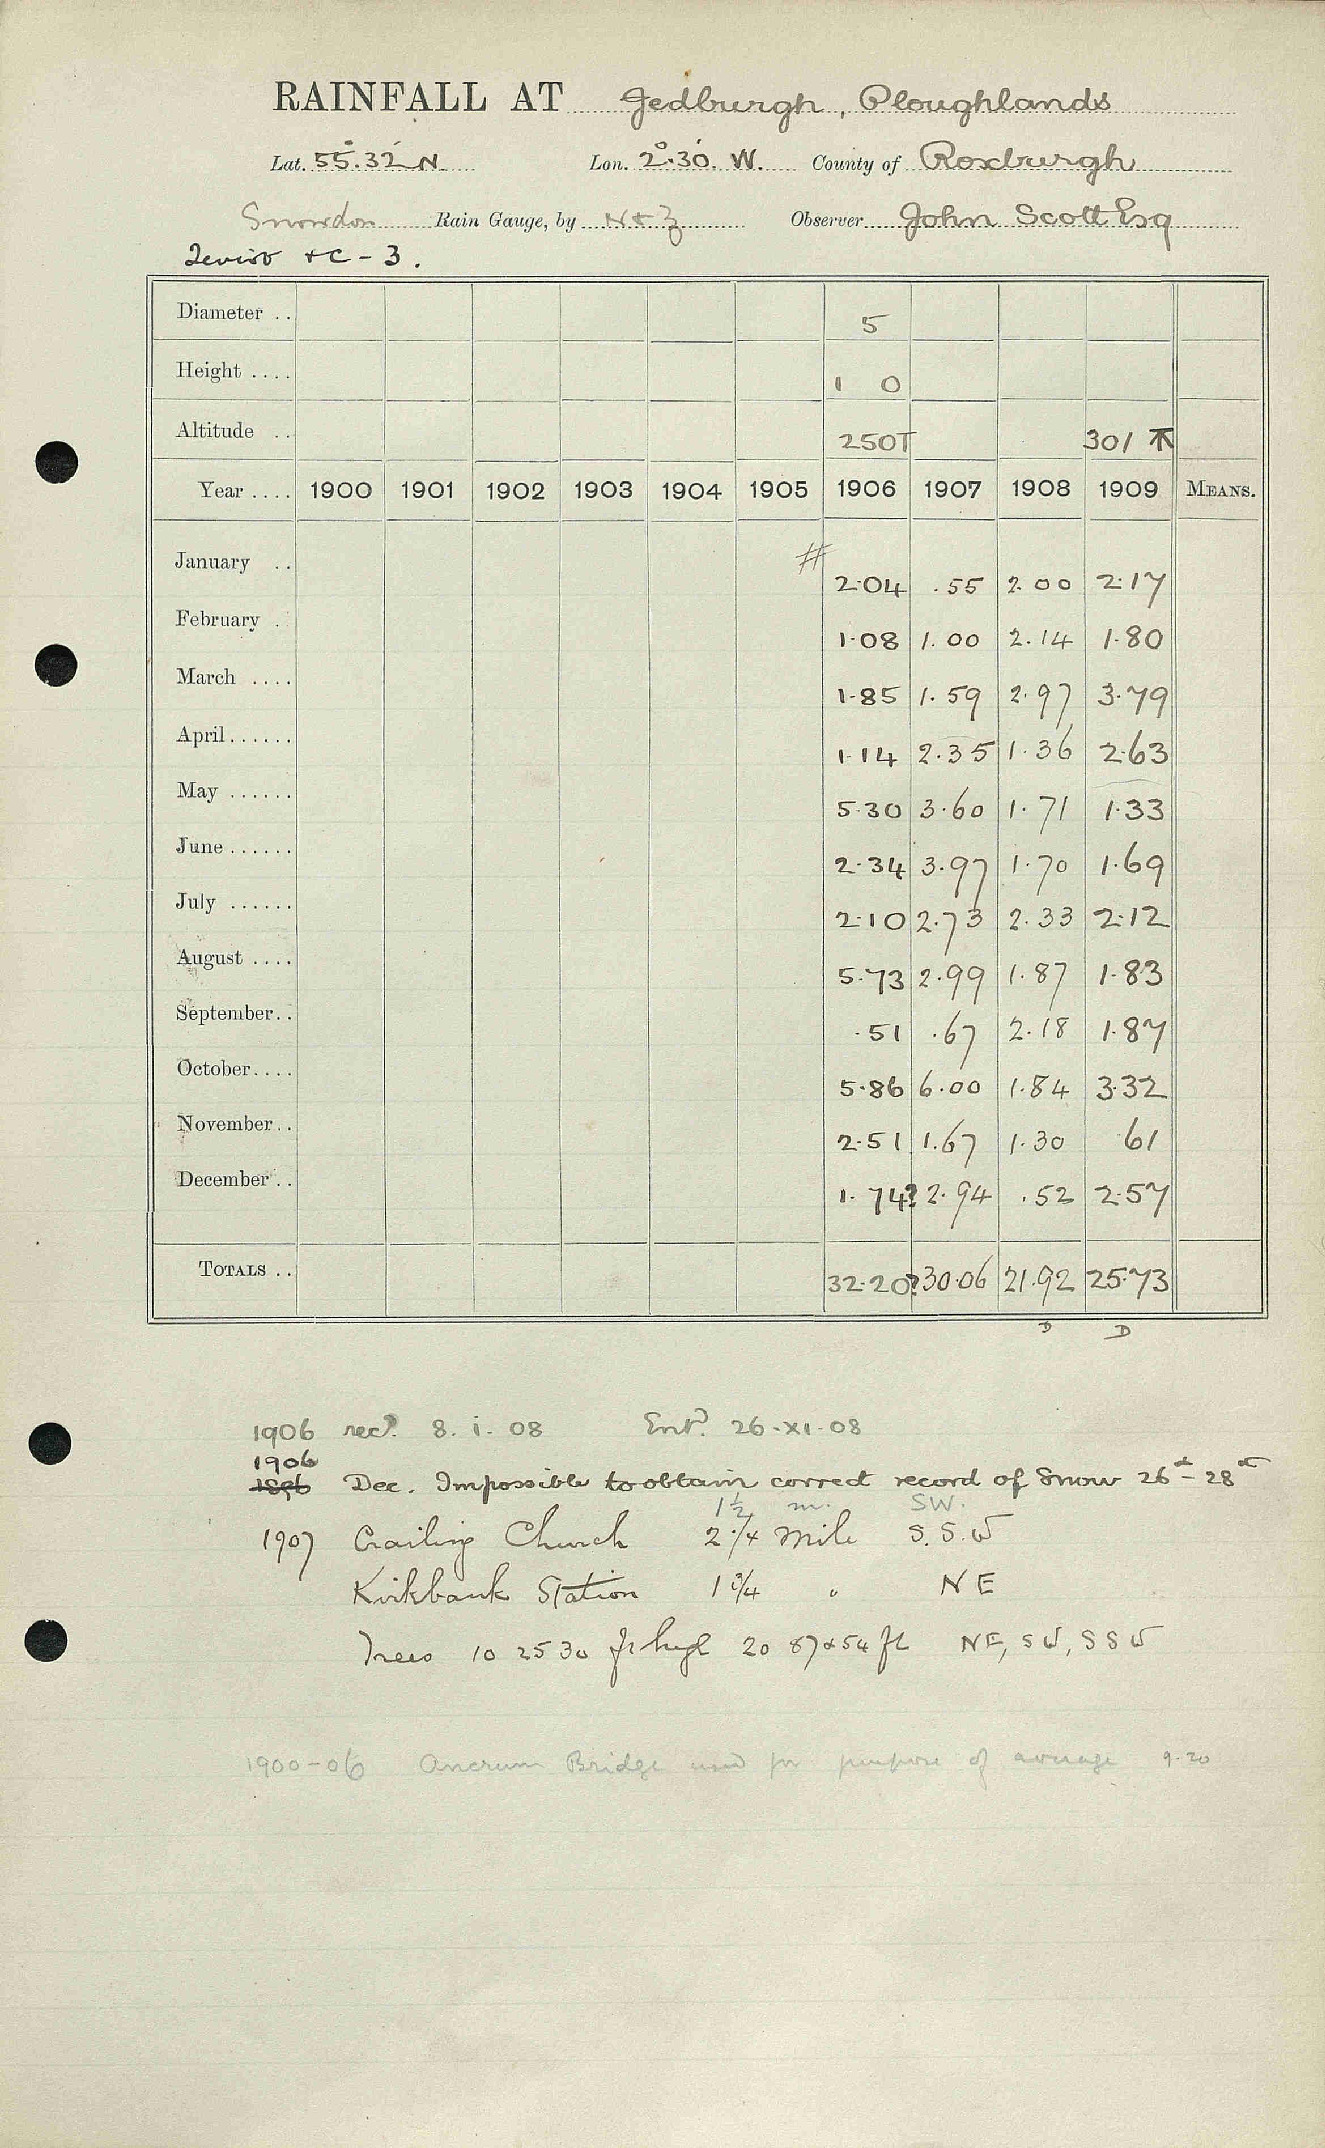 RAINFALL AT Jedburgh, Ploughlands
Lat. 55°.32' N Lon. 2°.30'. W. County of Roxburgh
Snowdon Rain Gauge, by N & Z Observer John Scott Esq
+C - 3.
Diameter .. 5
Height .... 1 0
Altitude .. 250T 301
Year .... 1900 1901 1902 1903 1904 1905 1906 1907 1908 1909 MEANS.
#
January .. 2.04 .55 2.00 2.17
February . 1.08 1.00 2.14 1.80
March .... 1.85 1.59 2.97 3.79
April ...... 1.14 2.35 1.36 2.63
May ...... 5.30 3.60 1.71 1.33
June ...... 2.34 3.97 1.70 1.69
July ...... 2.10 2.73 2.33 2.12
August .... 5.73 2.99 1.87 1.83
September.. .51 .67 2.18 1.87
October.... 5.86 6.00 1.84 3.32
November.. 2.51 1.67 1.30 61
December .. 1.74? 2.94 .52 2.57
TOTALS .. 32.20? 30.06 21.92 25.73
D D
1906 recd. 8. i. 08 Entd. 26.XI.08
1906
1896 Dec. Impossible to obtain correct record of Snow 26th - 28th
1½ m. SW.
1907 Crailing Church 2¼ Mile S.S.W
Kirkbank Station 1¾ " NE
Trees 10 25 30 ft high 20 87 & 54 ft NE, SW, SSW
1900-06 Ancrum Bridge used for purpose of average 9.20